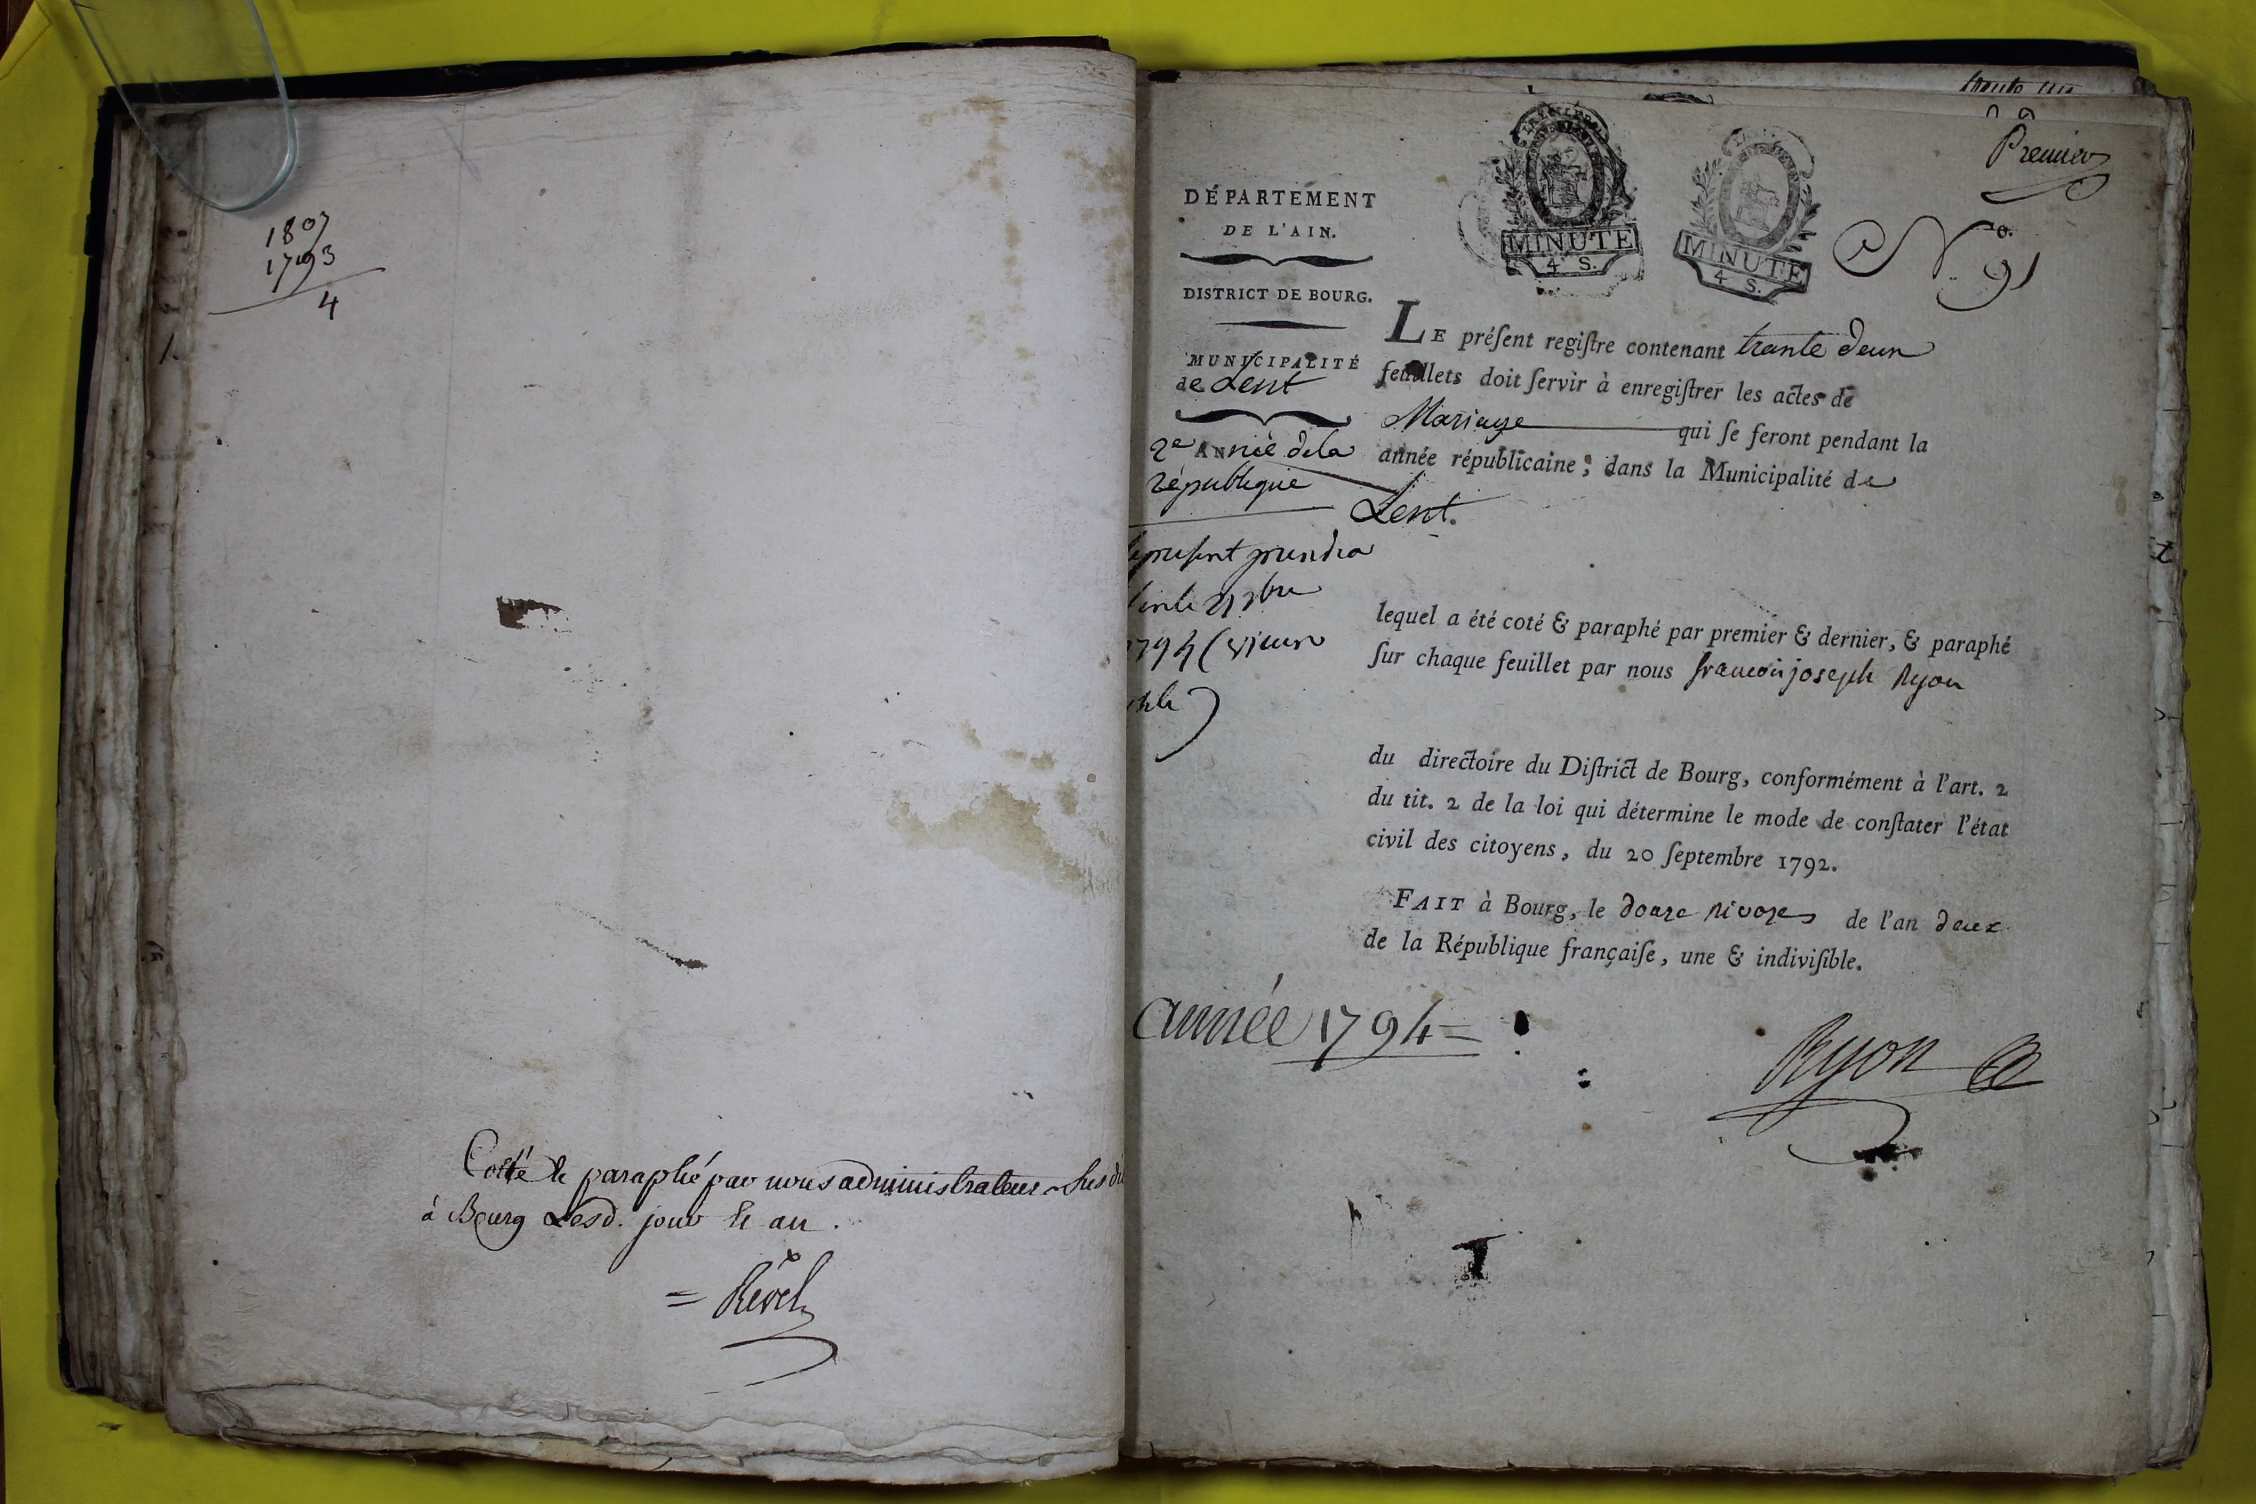 1807
1793
4
1.
Cotté & paraphé par nous administrateur
à Bourg Lesd. jour & an.
= Revel
trente
Premier
MINUTE
4 S.
MINUTE
4 S.
N.º 91
DÉPARTEMENT
DE L'AIN.
DISTRICT DE BOURG.
MUNICIPALITÉ
de Lent
2e ANnée dela
république
présent prendra
1794 (vieux
LE préſent regiſtre contenant trante deux
feuillets doit ſervir à enregiſtrer les actes de
Mariage qui ſe feront pendant la
année républicaine; dans la Municipalité de
Lent.
lequel a été coté & paraphé par premier & dernier, & paraphé
ſur chaque feuillet par nous francois joseph Ryon
du directoire du Diſtrict de Bourg, conformément à l'art. 2
du tit. 2 de la loi qui détermine le mode de conſtater l'état
civil des citoyens, du 20 ſeptembre 1792.
FAIT à Bourg, le douze nivoses de l'an deux
de la République françaiſe, une & indiviſible.
année 1794 =
Ryon